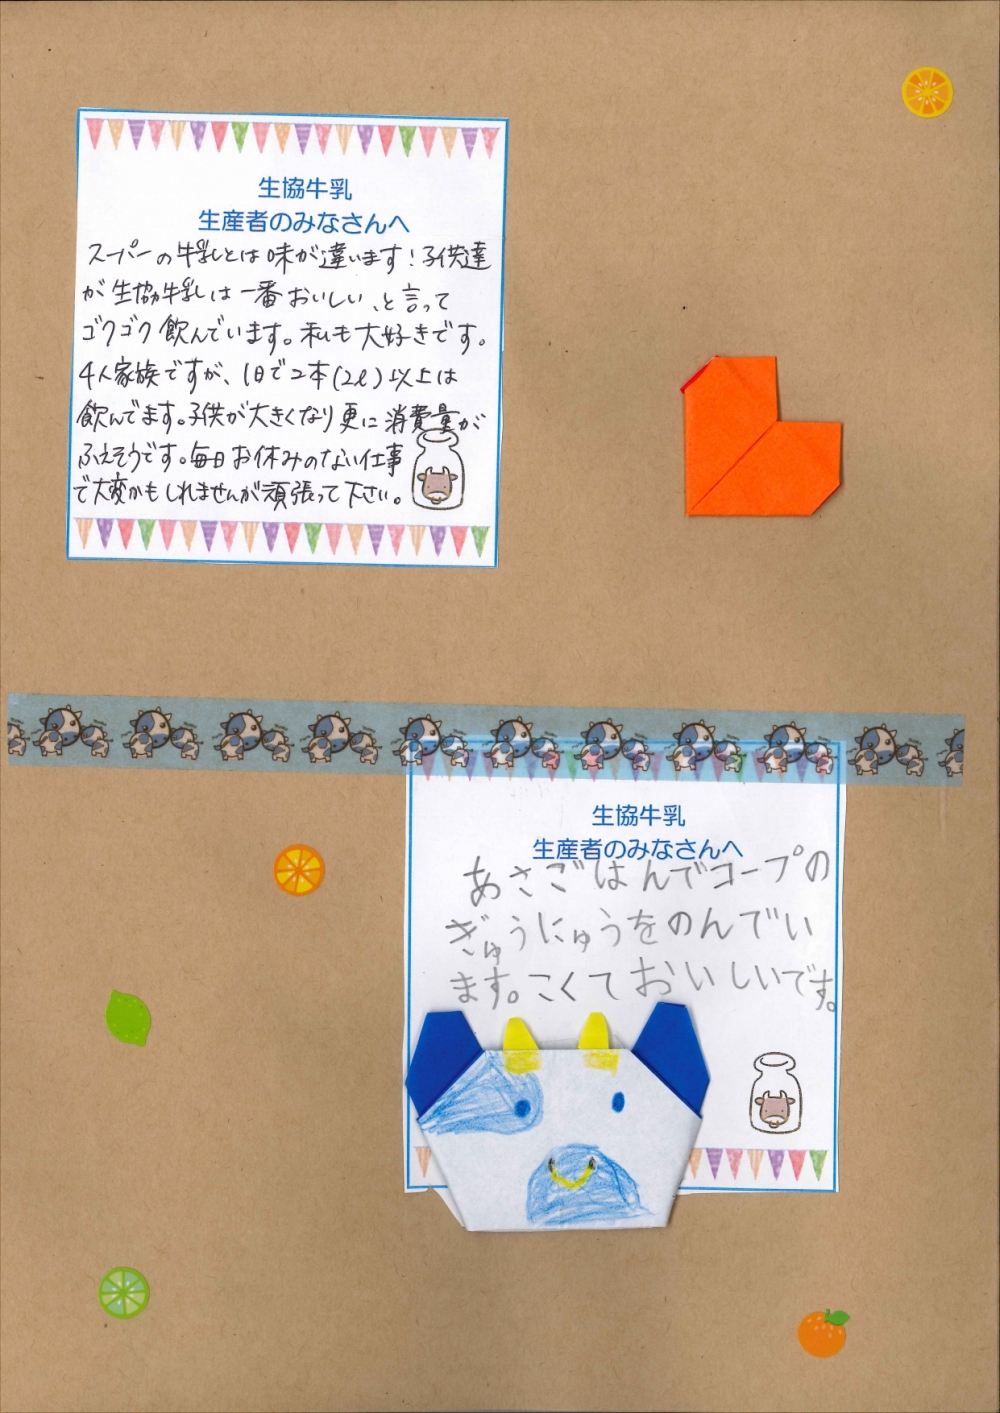 生協牛乳
生産者のみなさんへ
スーパーの牛乳とは味が違います！子供達
が生協牛乳は一番おいしい、と言って
ゴクゴク飲んでいます。私も大好きです。
4人家族ですが、1日で2本(2ℓ)以上は
飲んでます。子供が大きくなり更に消費量が
ふえそうです。毎日お休みのない仕事
で大変かもしれませんが頑張って下さい。
生協牛乳
生産者のみなさんへ
あさごはんでコープの
ぎゅうにゅうをのんでい
ます。こくておいしいです。